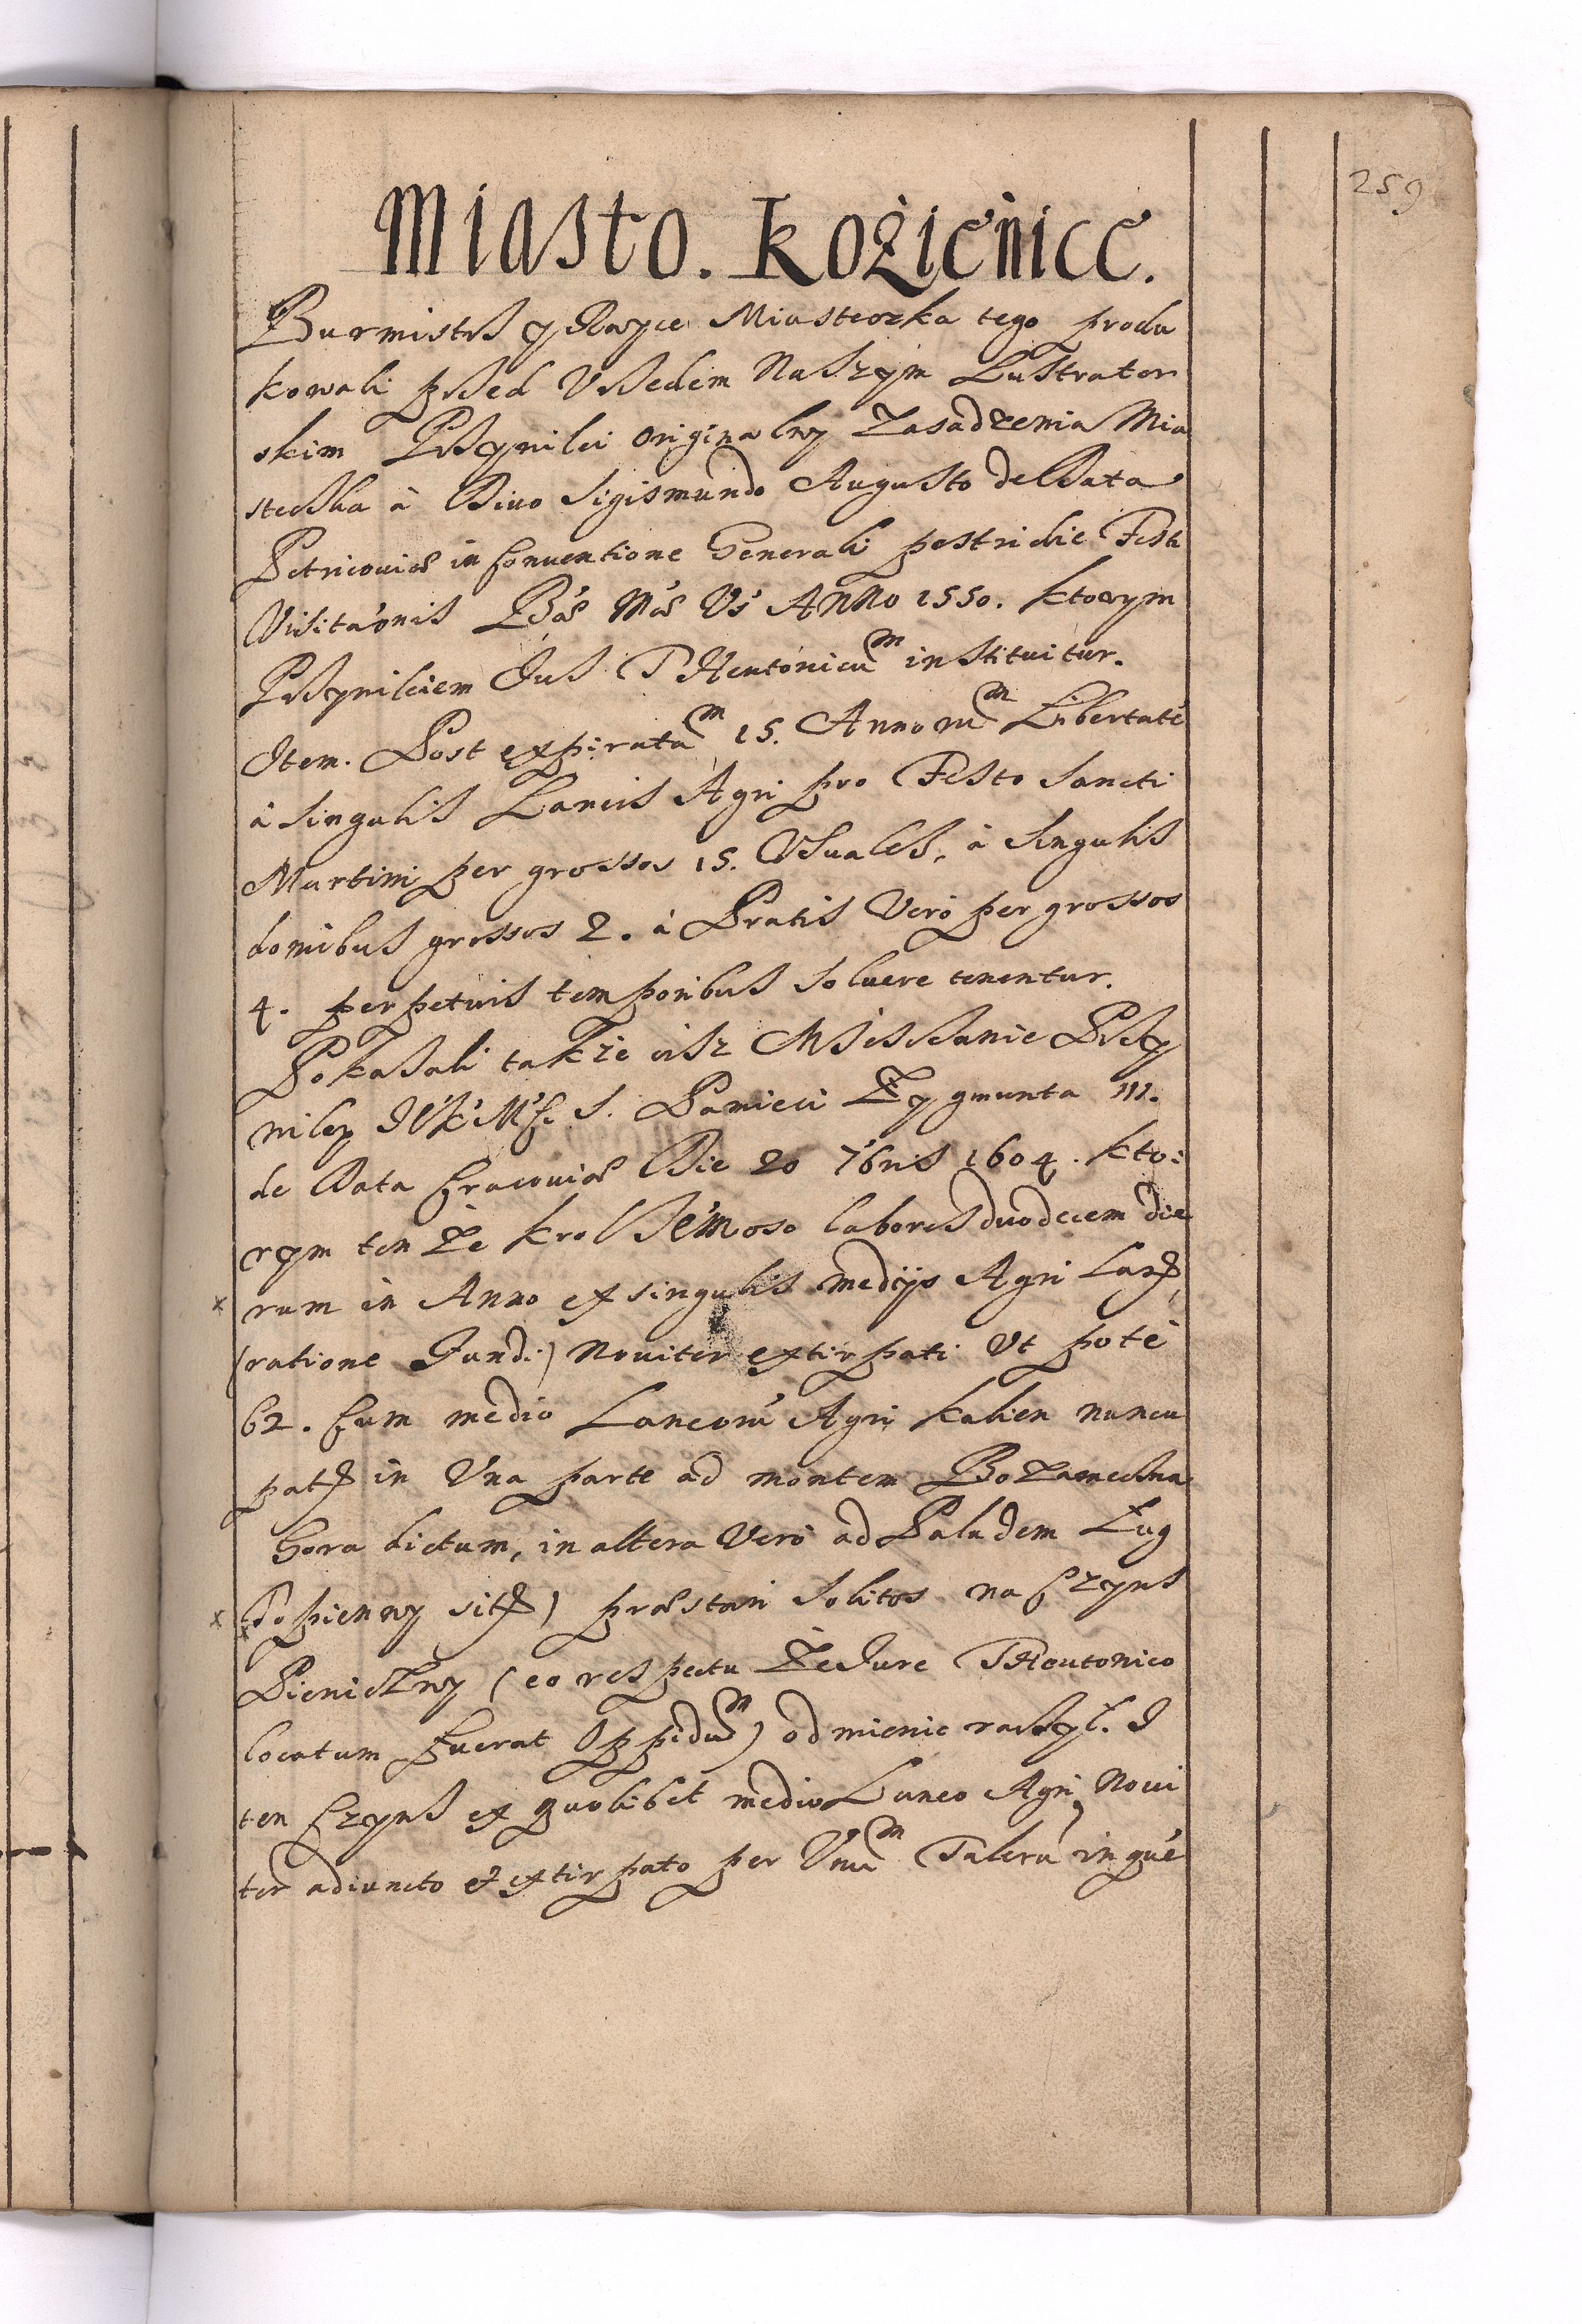 259
Miasto. Kozienice.
Burmistrz y Rayce Miasteczka tego produ
kowali przed Urzedem Naszym Lustrator
skim Przywilei originalny Zasadzenia Mia
steczka à Divo Sigismundo Augusto de Data
Petricoviae in Conventione Generali postridie Festi
Visitaónis Bae Mae Vs Anno 1550. ktorym
Przywileiem Jus Theutonicum instituitur.
Item. Post expiratam 15. Annorum Libertatē
à singulis Laneis Agri pro Festo Sancti
Martini per grossos 15. Usuales, à Singulis
domibus grossos 2. à Pratis Vero per grossos
4. perpetuis temporibus Soluere tenentur.
Pokazali takze ciz Miesczanie Przy
wiley JKMSc S. Pamieci Zygmunta III.
de Data Cracoviae Die 20 7bris 1604. kto:
rym ten ze krol labores duodecem die
rum in Anno ex singulis medijs Agri Lan̄
(ratione Fundi) Noviter extirpati Ut potè
62. Cum medio Laneorū Agri kalien nuncu
pat in Una parte ad montem Bozameczna
Gora dictum, in altera Verò ad Paludem Ług
Topienny sit) praestari Solitos na Czyns
Pieniezny (eo respectu ze Jure Theutonico
locatum fuerat Oppidum) odmienic raczył. I
ten Czyns ex quolibet medio Laneo Agri Novi
ter adiuncto et extirpato per Unum Talerū in quē